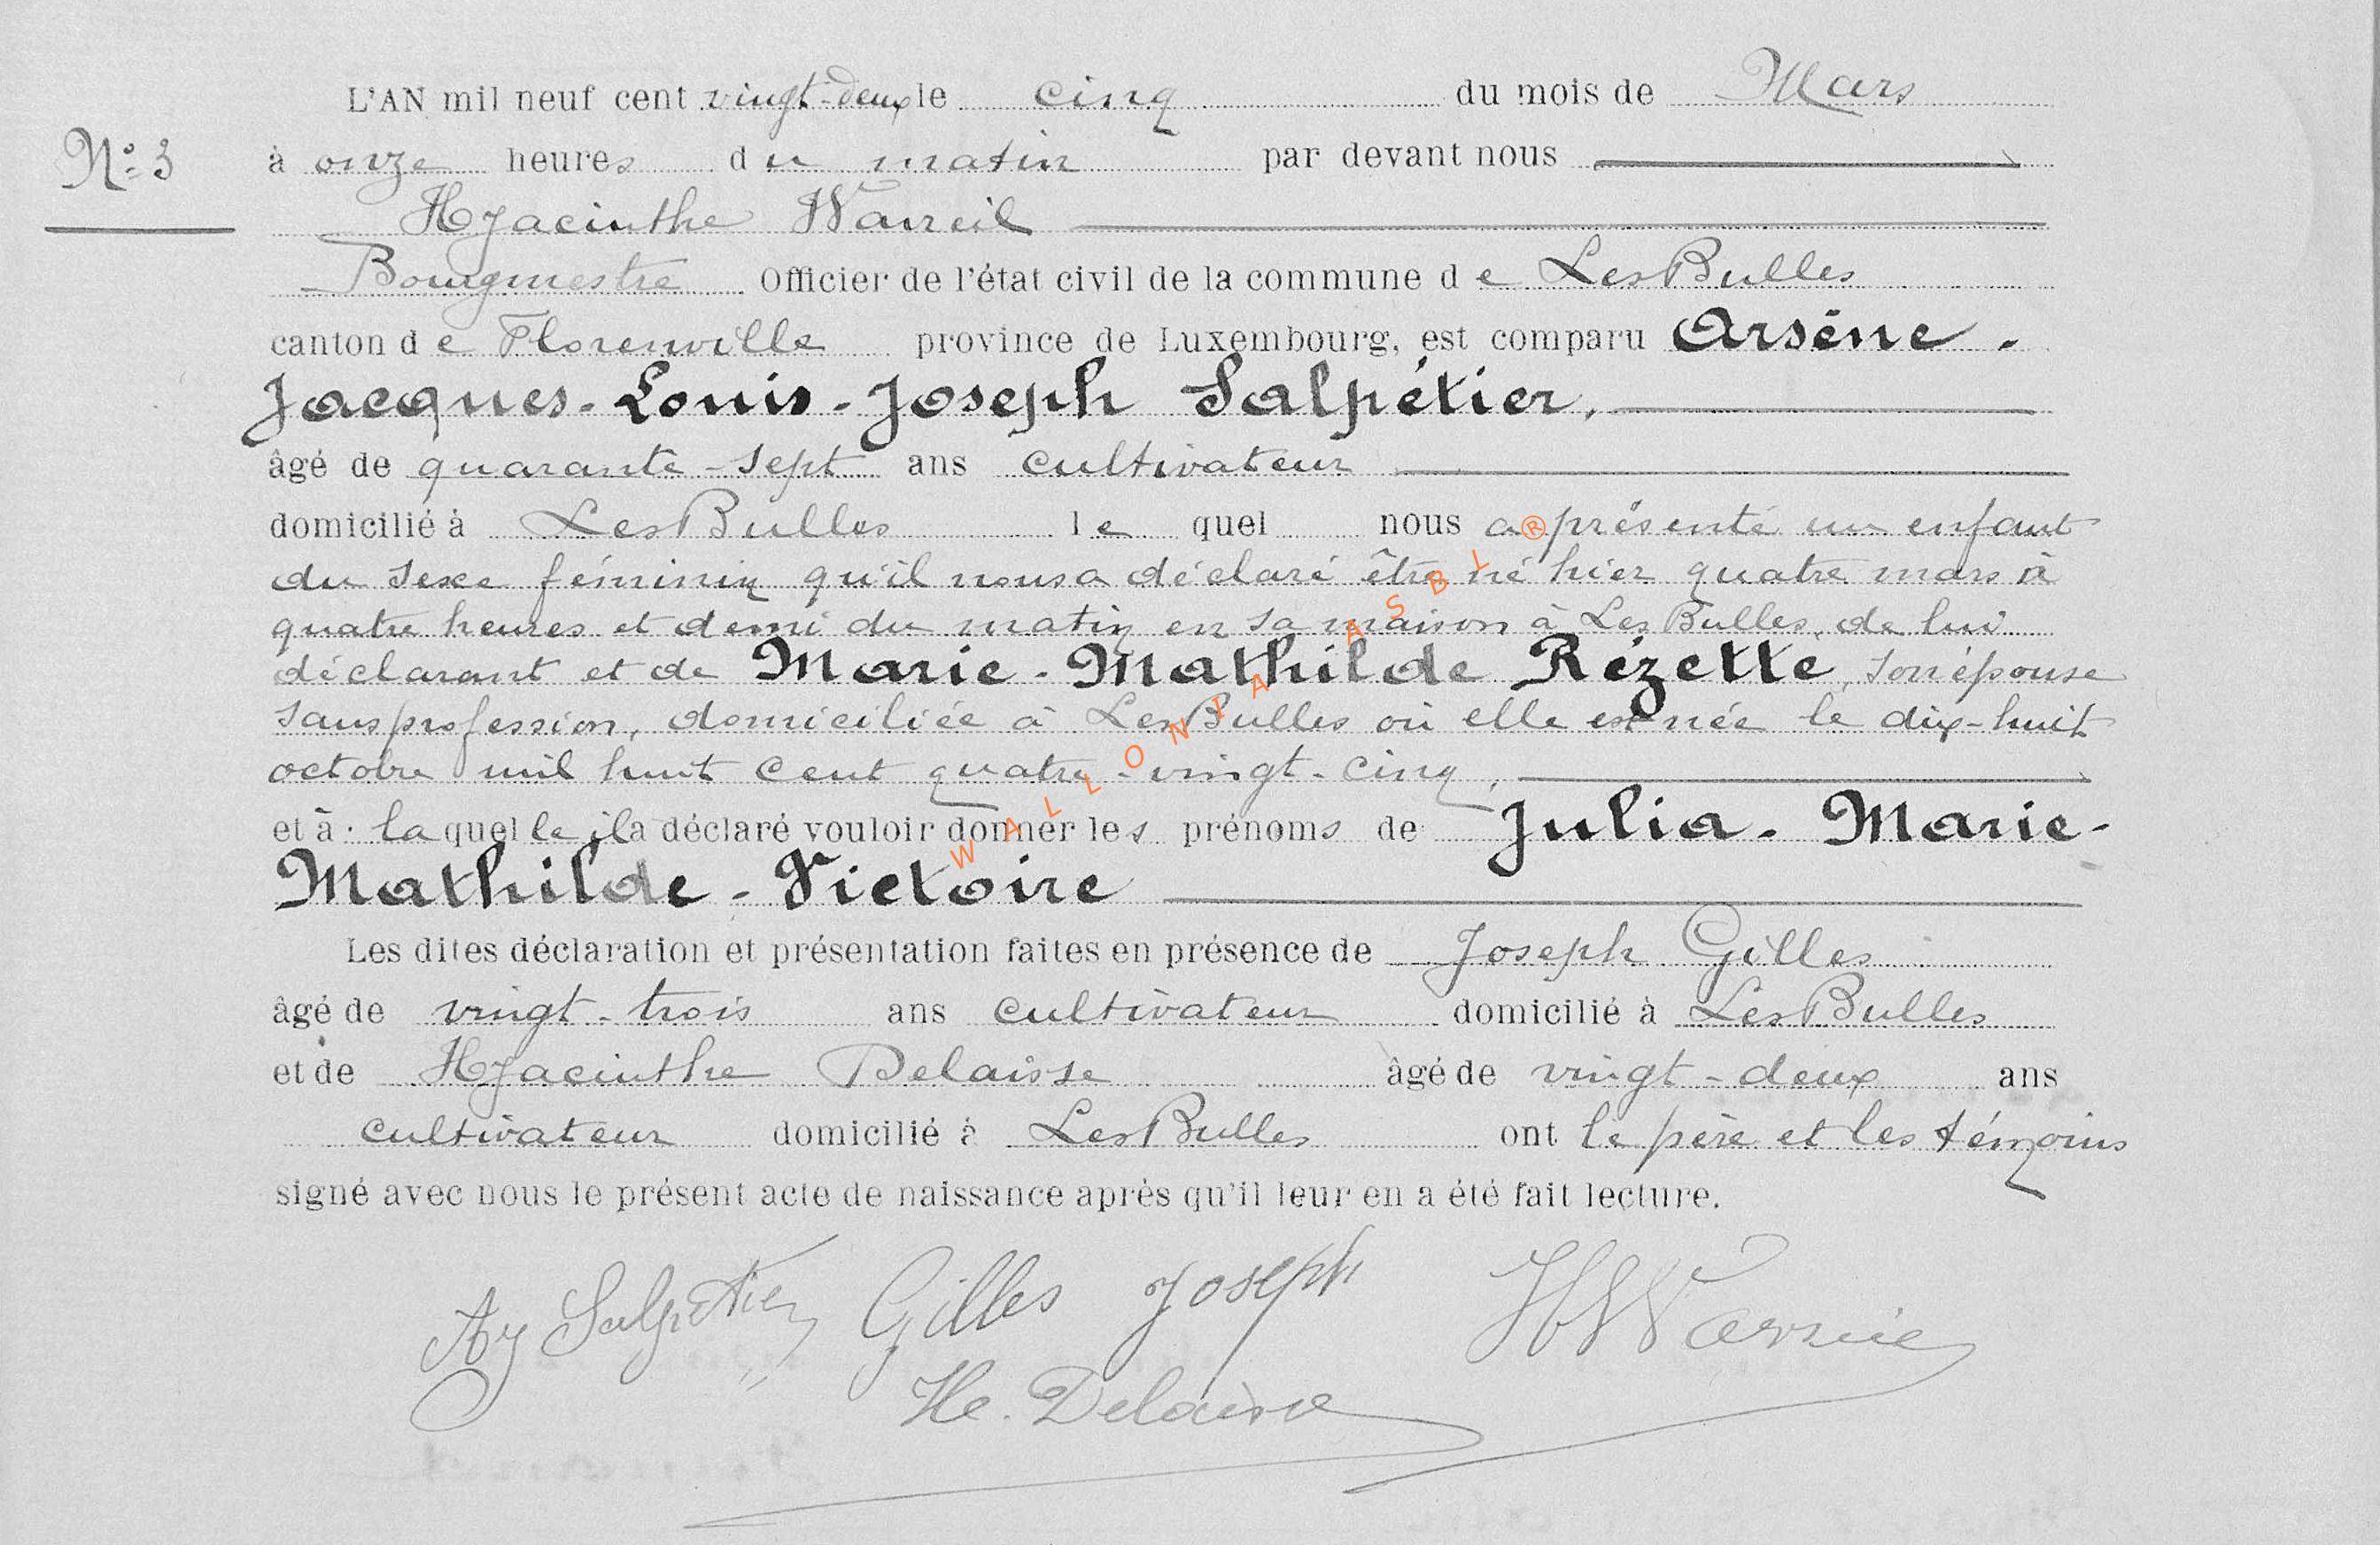 L'AN mil neuf cent vingt-deux le cinq du mois de Mars
N° 3
à onze heures du matin par devant nous
Hyacinthe Warreil
Bourgmestre Officier de l'état civil de la commune de Les Bulles
canton de Florenville province de Luxembourg, est comparu Arsène-
Jacques-Louis-Joseph Salpétier,
âgé de quarante-sept ans cultivateur
domicilié à Les Bulles lequel nous a présenté un enfant
du sexe féminin qu'il nous a déclaré être né hier quatre mars à
quatre heures et demi du matin en sa maison à Les Bulles, de lui
déclarant et de Marie-Mathilde Rézette, son épouse
sans profession, domiciliée à Les Bulles où elle est née le dix-huit
octobre mil huit cent quatre-vingt-cinq,
et à : laquelle il a déclaré vouloir donner les prénoms de Julia-Marie-
Mathilde-Victoire
Les dites déclaration et présentation faites en présence de Joseph Gilles
âgé de vingt-trois ans cultivateur domicilié à Les Bulles
et de Hyacinthe Delaisse âgé de vingt-deux ans
cultivateur domicilié à Les Bulles ont le père et les témoins
signé avec nous le présent acte de naissance après qu'il leur en a été fait lecture.
Salpétier Gilles Joseph
H. Delaisse
WALLONIA ASBL ®